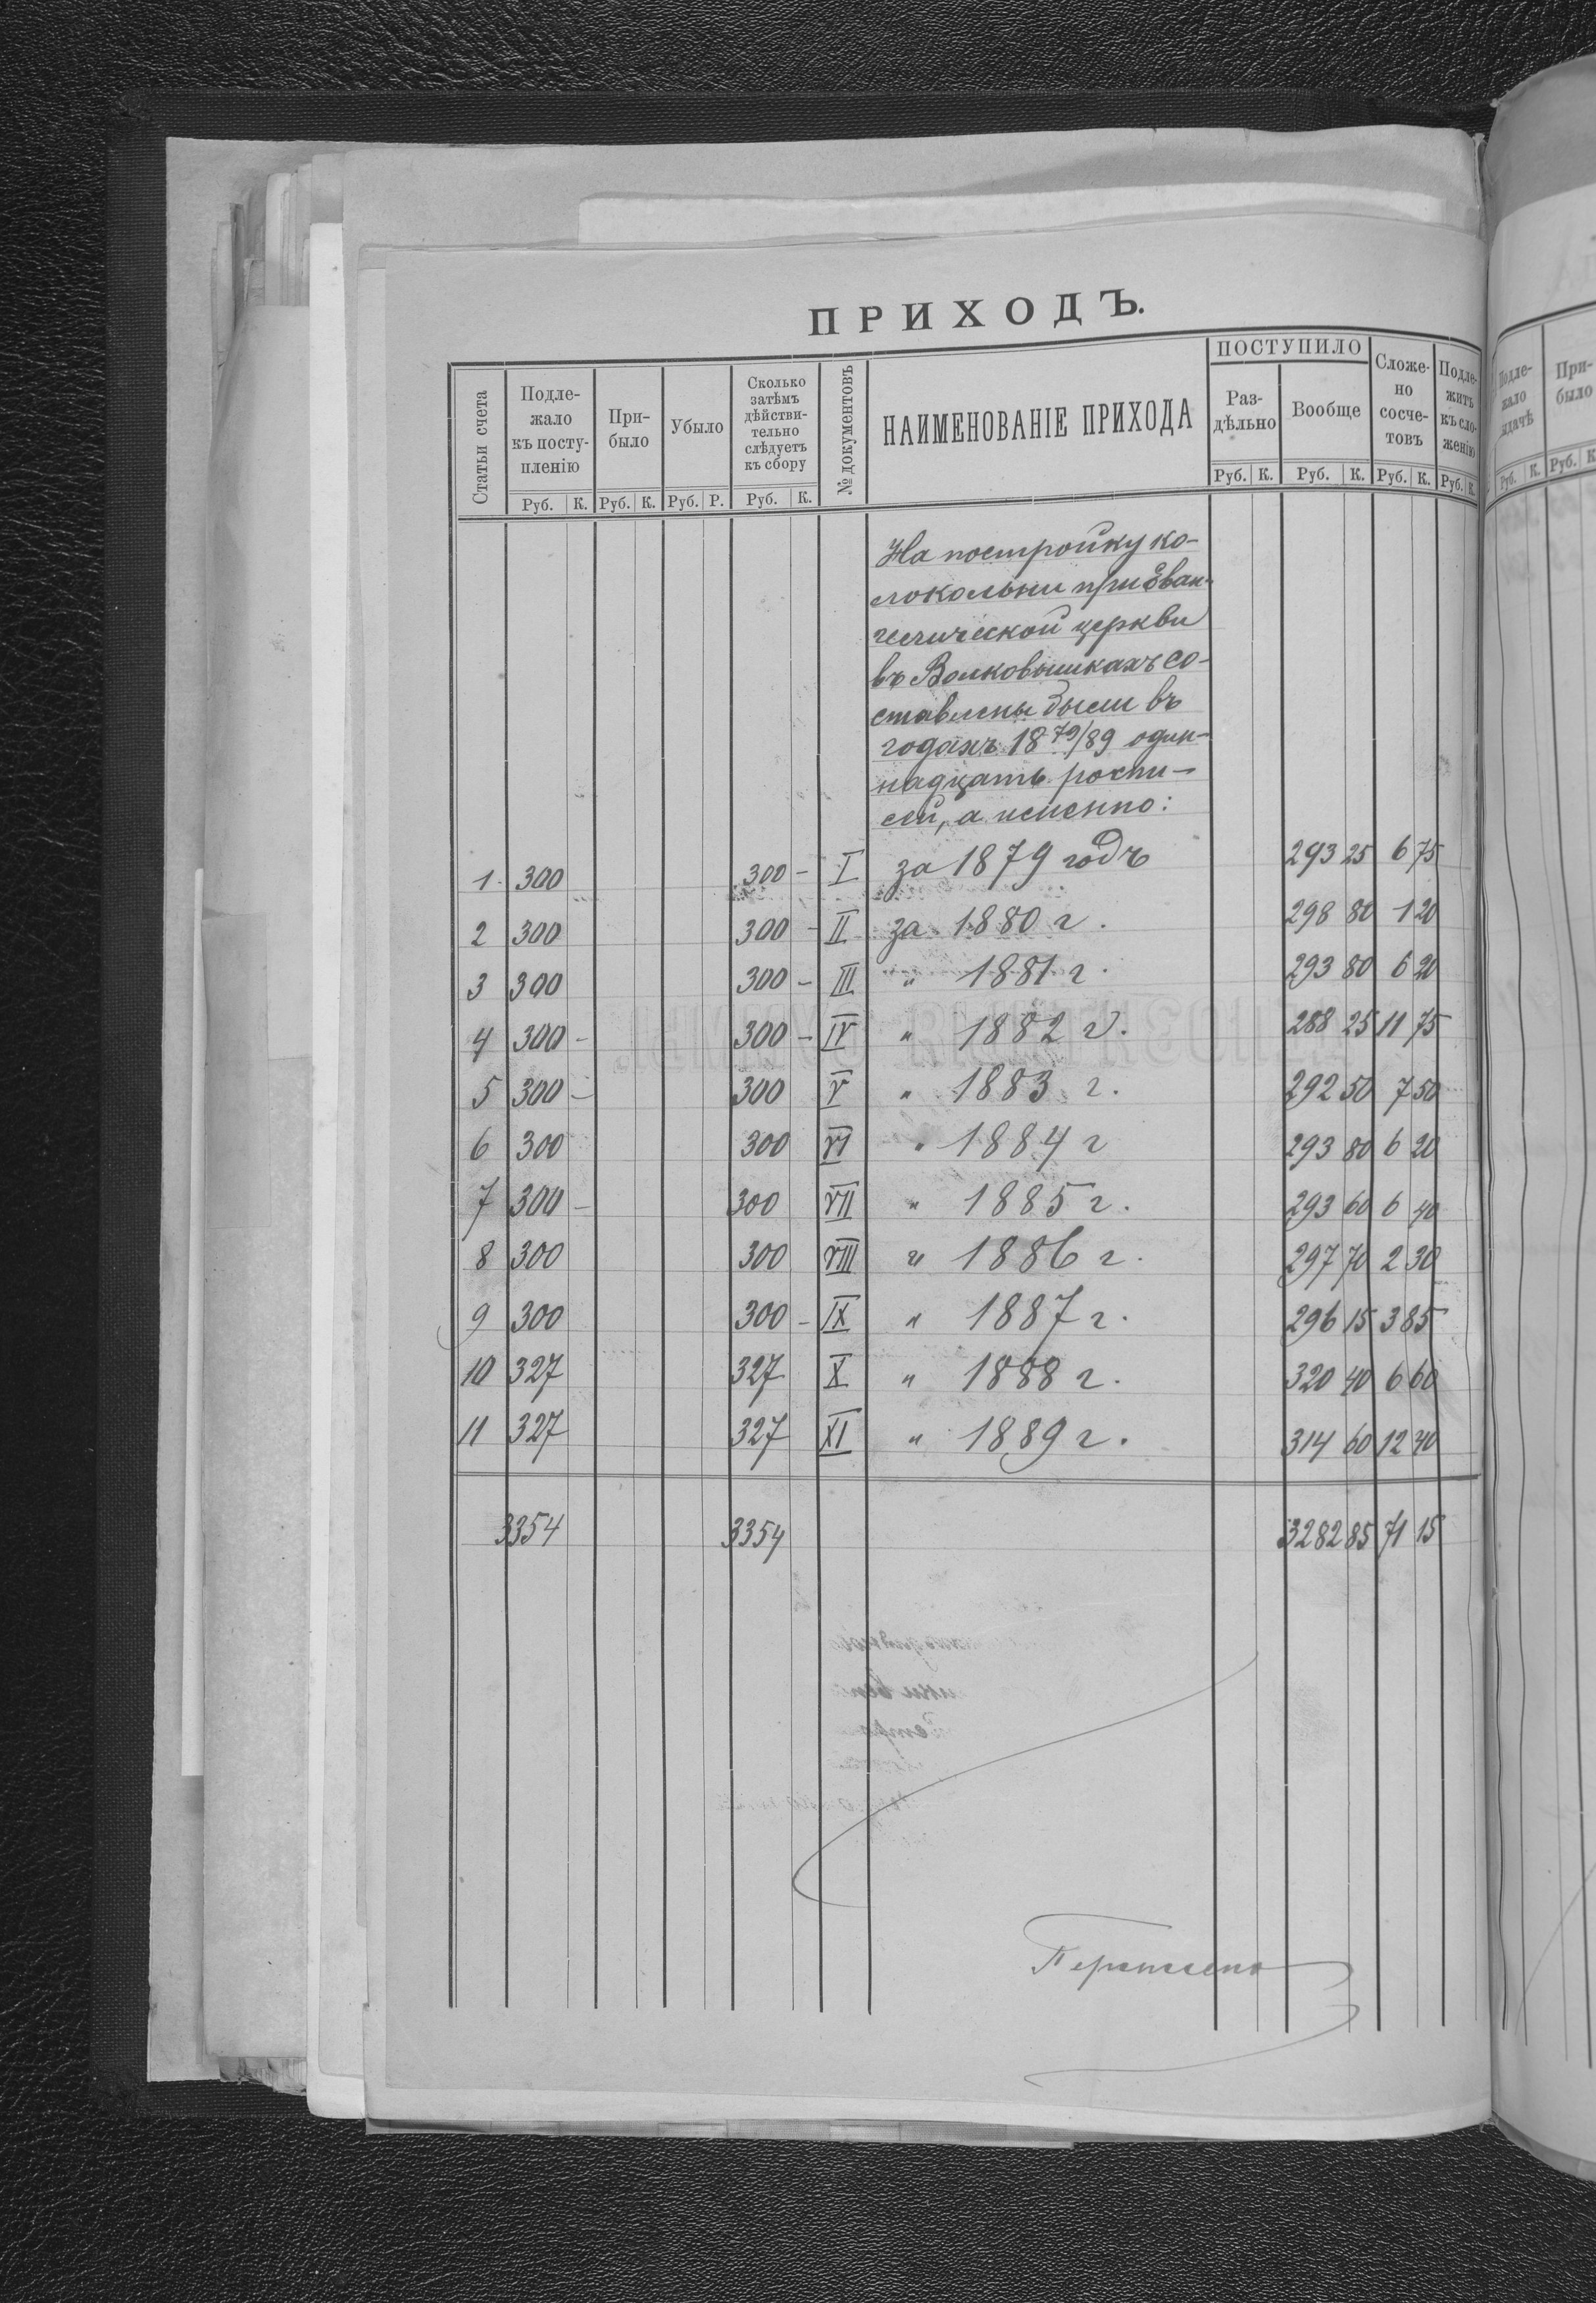 ПРИХОДЪ.
Статьи счета | Подле-жало къ посту-пленію Руб. К. | При-было Руб. К. | Убыло Руб. Р. | Сколько затѣмъ дѣйстви-тельно слѣдуетъ къ сбору Руб. К. | № документовъ | НАИМЕНОВАНІЕ ПРИХОДА | ПОСТУПИЛО Раз-дѣльно Руб. К. | Вообще Руб. К. | Сложе-но сосче-товъ Руб. К. | Подле-житъ къ сло-женію Руб. К.
На постройку ко-
локольни при Еван-
гелической церкви
въ Волковышкахъ со-
ставлены были въ
годахъ 1879/89 один-
надцать роспи-
сей, а именно:
1. 300 300 - I за 1879 годъ 293 25 6 75
2 300 300 - II за 1880 г. 298 80 1 20
3 300 300 - III " 1881 г. 293 80 6 20
4 300 - 300 - IV " 1882 г. 288 25 11 75
5 300 - 300 V " 1883 г. 292 50 7 50
6 300 300 VI " 1884 г 293 80 6 20
7 300 - 300 VII " 1885 г. 293 60 6 40
8 300 300 VIII " 1886 г. 297 70 2 30
9 300 300 - IX " 1887 г. 296 15 3 85
10 327 327 X " 1888 г. 320 40 6 60
11 327 327 XI " 1889 г. 314 60 12 40
3354 3354 3282 85 71 15
Подле-жало
При-было
Руб. К. Руб. К